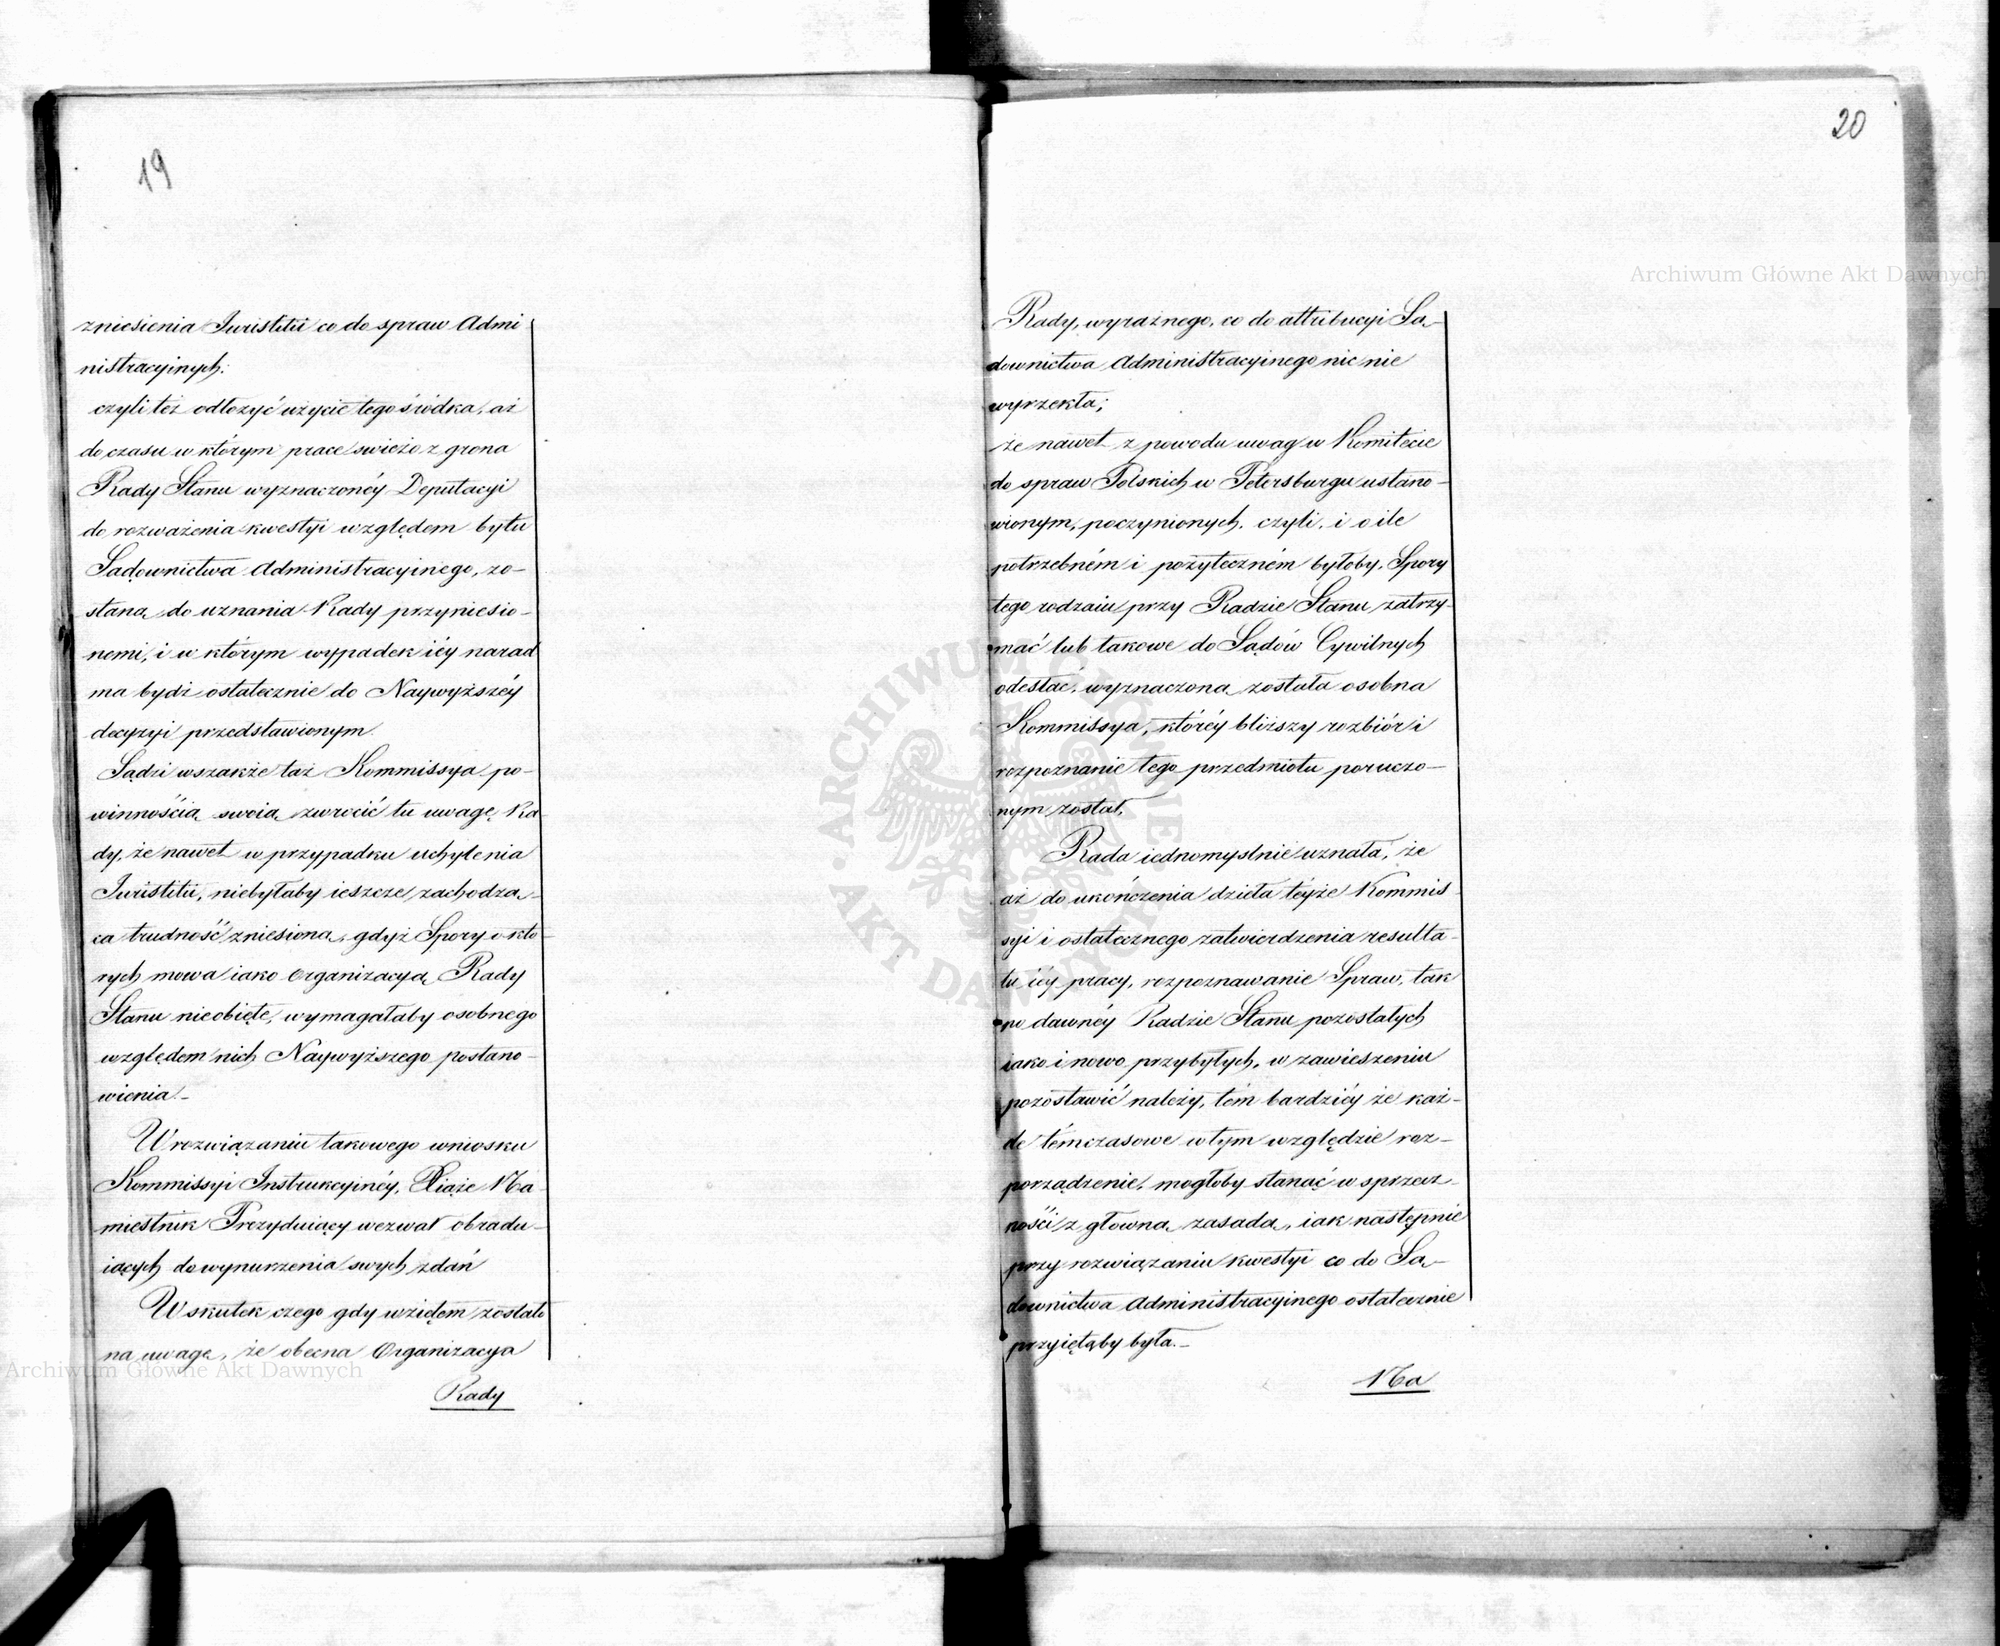 19
zniesienia Iuristitii co do spraw Admi
nistracyinych;
czyli też odłożyć użycie tego śródka, aż
do czasu w którym prace świeżo z grona
Rady Stanu wyznaczonéy Deputacyi
do rozważenia kwestyi względem bytu
Sądownictwa Administracyinego, zo-
staną do uznania Rady przyniesio-
nemi, i w którym wypadek iéy narad
ma bydź ostatecznie do Naywyższéy
decyzyi przedstawionym.
Sądzi wszakże taż Kommissya po-
winnością swoią zwrócić tu uwagę Ra-
dy, że nawet w przypadku uchylenia
Iuristitii, niebyłaby ieszcze zachodzą-
ca trudność zniesioną, gdyż Spory o któ-
rych mowa iako Organizacyą Rady
Stanu nieobięte, wymagałaby osobnego
względem nich Naywyższego postano-
wienia.-
W rozwiązaniu takowego wniosku
Kommissyi Instrukcyinéy, Xiąże Na-
miestnik Prezyduiący wezwał obradu-
iących do wynurzenia swych zdań
W skutek czego gdy wziętem zostało
na uwagę, że obecna Organizacya
Rady
20
Rady, wyraźnego, co do attribucyi Są-
downictwa Administracyinego nic nie
wyrzekła;
że nawet z powodu uwag w Komitecie
do spraw Polskich w Petersburgu ustano-
wionym, poczynionych, czyli, i o ile
potrzebném i pożyteczném byłoby, Spory
tego rodzaiu przy Radzie Stanu zatrzy-
mać lub takowe do Sądów Cywilnych
odesłać, wyznaczoną została osobna
Kommissya, któréy bliższy rozbiór i
rozpoznanie tego przedmiotu poruczo-
nym został,
Rada iednomyslnie uznała, że
aż do ukończenia dzieła téyże Kommis-
syi i ostatecznego zatwierdzenia resulta-
tu iéy pracy, rozpoznawanie Spraw, tak
po dawnéy Radzie Stanu pozostałych
iako i nowo przybyłych, w zawieszeniu
pozostawić należy, tém bardziéy że każ-
de témczasowe w tym względzie roz-
porządzenie, mogłoby stanąć w sprzecz-
ności z główną zasadą, iak następnie
przy rozwiązaniu kwestyi co do Są-
downictwa Administracyinego ostatecznie
przyiętąby była.-
Na
Archiwum Główne Akt Dawnych
Archiwum Główne Akt Dawnych
ARCHIWUM GŁÓWNE AKT DAWNYCH